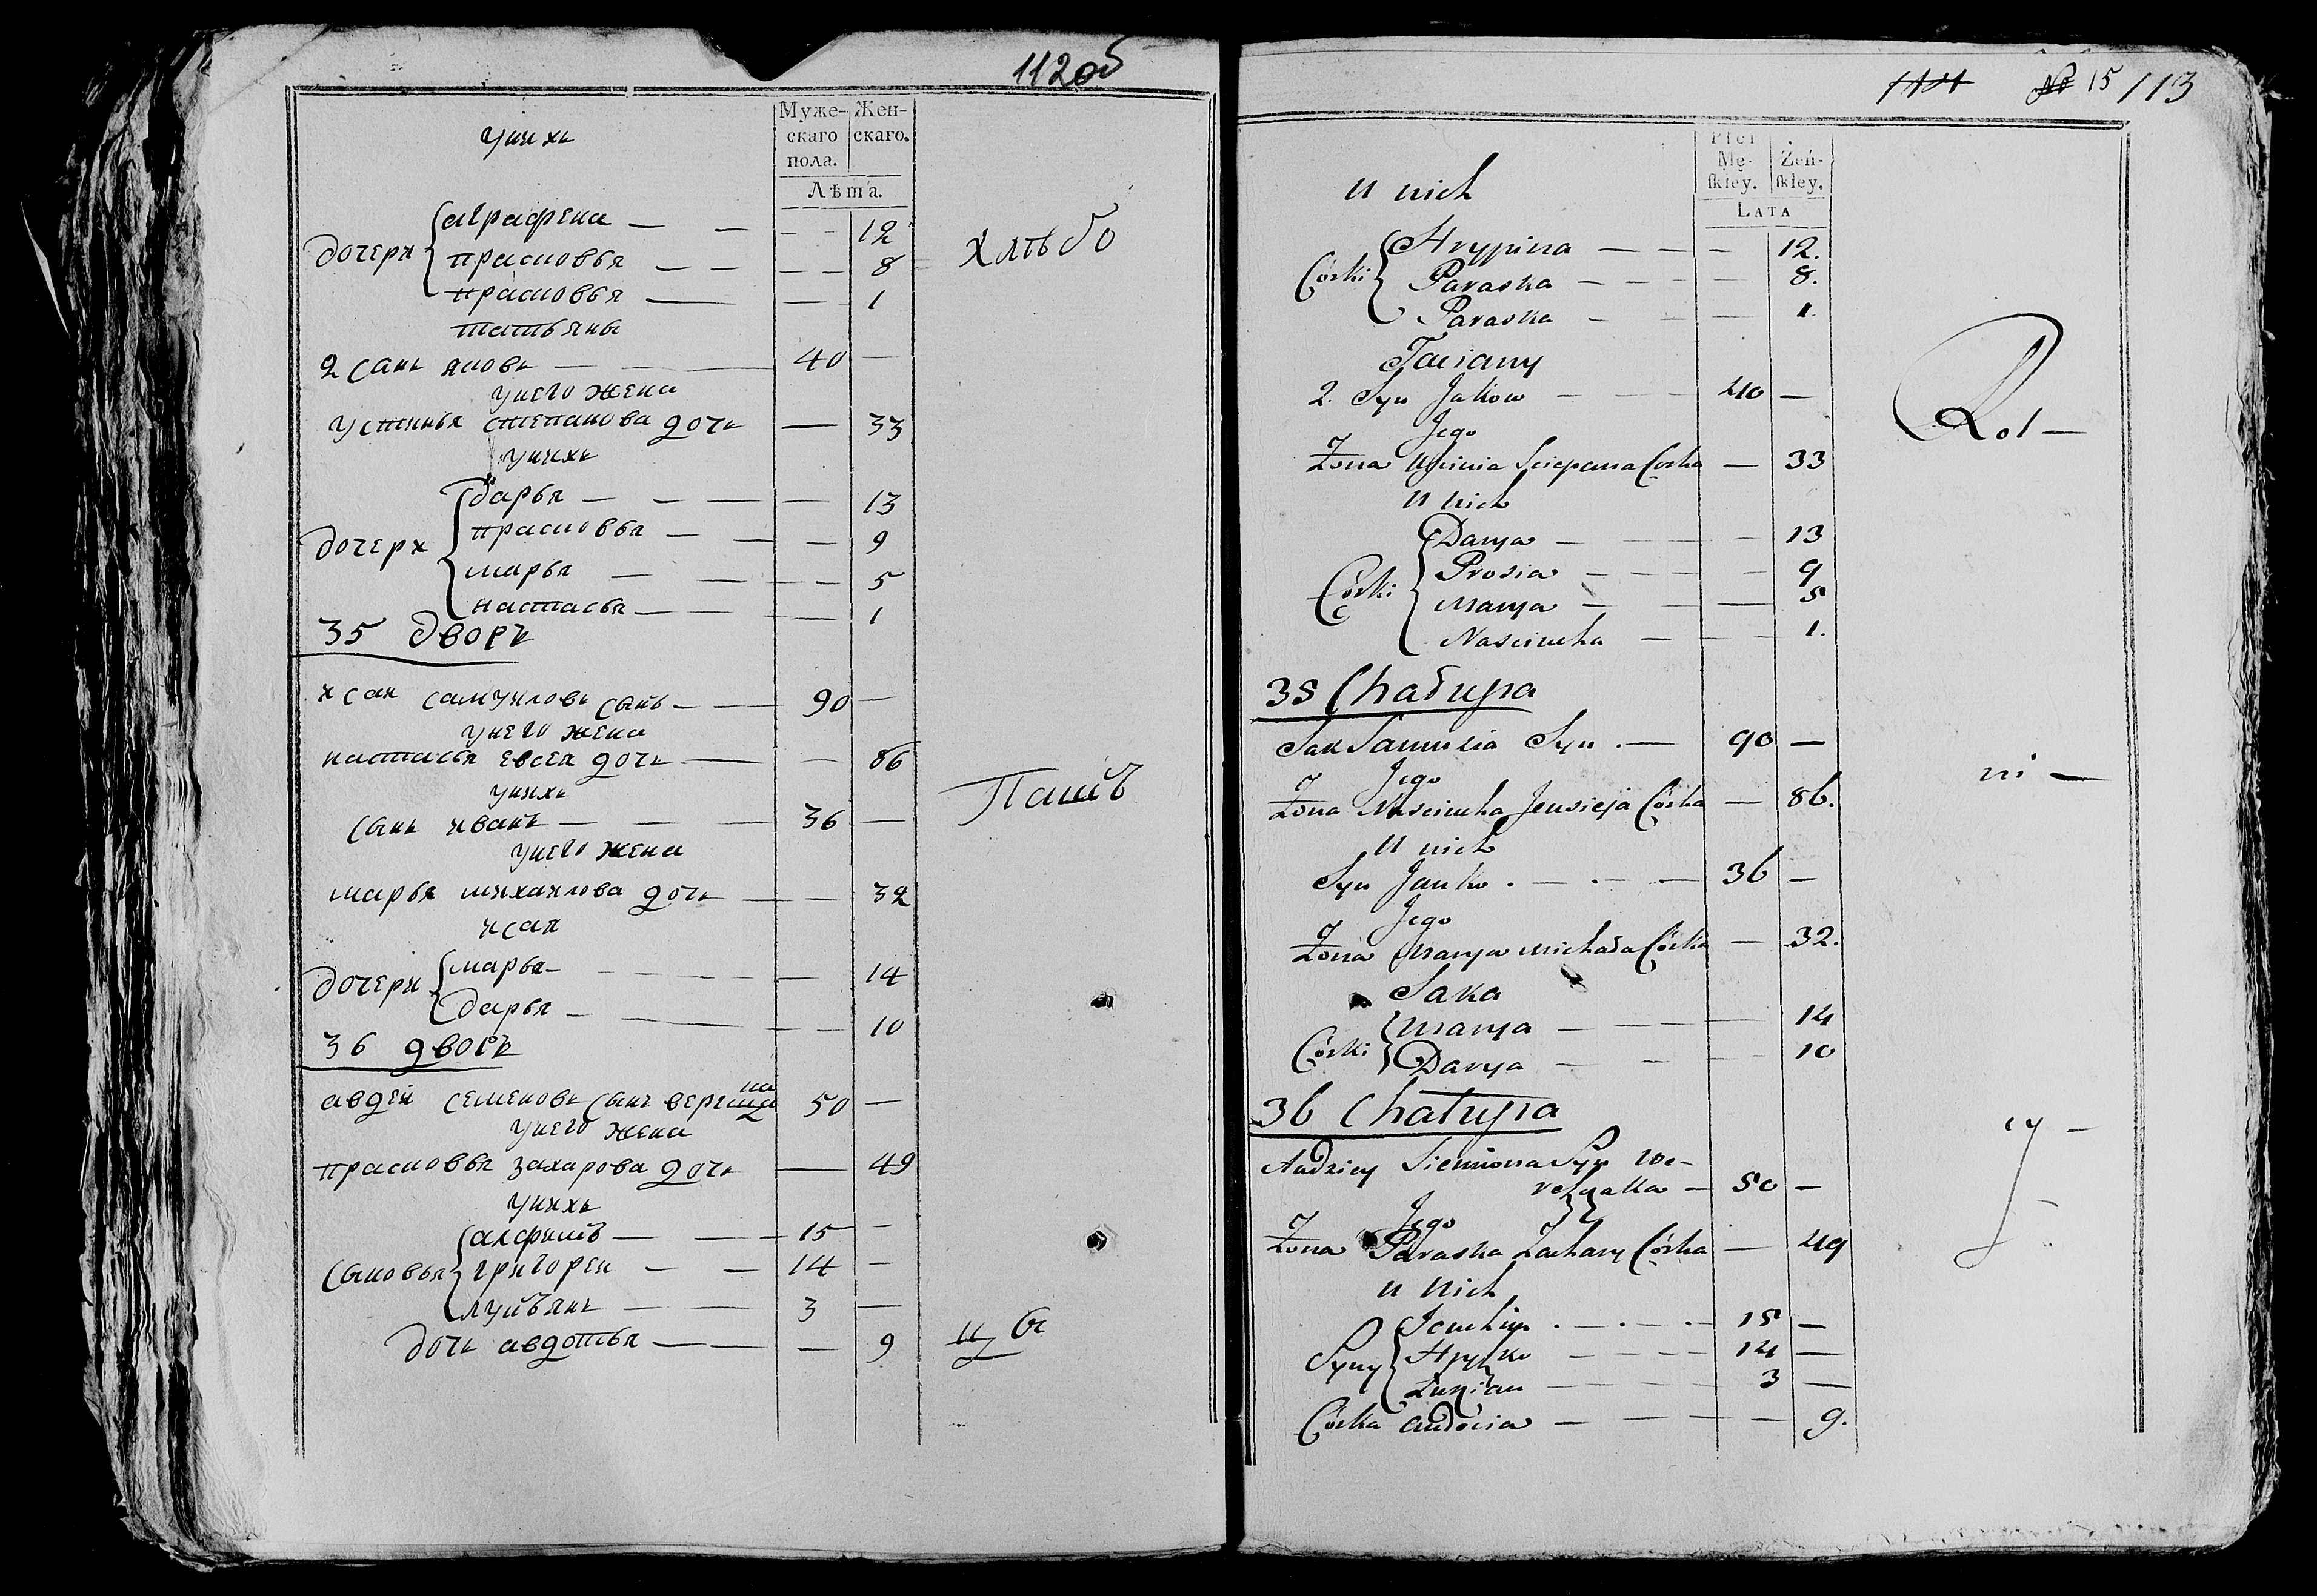 112об
Муже-
скаго
пола.
Жен-
скаго.
Лѣта.
унихъ
дочери
аграфена — — — — 12
прасковья — — — — 8
прасковья — — 1
татьяны
2 сынъ яковъ — — — 40 —
унего жена
устинья степанова дочь — 33
унихъ
дочери
дарья — — — — 13
прасковья — — — 9
марья — — — — 5
настасья — — — — 1
35 дворъ
исак самуиловъ сынъ — — 90 —
унего жена
настасья евсея дочь — — 86
унихъ
сынъ иванъ — — — 36 —
унего жена
марья михаилова дочь — — 32
исак
дочери
марья — — — — 14
дарья — — — — 10
36 дворъ
авдей семеновъ сынъ 50 —
унего жена
прасковья захарова дочь — 49
унихъ
сыновья
григорей — — 14 —
лукьянъ — — 3 —
дочь авдотья — — — 9
хлѣбо
Пашъ
цы
№ 15 113
Płci
Mę-
ſkiey.
Żeń-
ſkiey.
LATA
U nich
Córki
Hrypina — — — 12.
Paraska — — — — 8.
Paraska — — — 1.
Taciany
2. Syn Jakow — — 40 —
Jego
Żona Uscinia Sciepana Corka — 33
U nich
Córki
Darya — — — 13
Prosia — — — — 9
Marya — — — 5
Nasciucha — — — 1.
35 Chałupa
Sak Samusia Syn . — 90 —
Jego
Żona Nasciucha Jeusieja Córka — 86.
U nich
Syn Janko . — . — — 36 —
Jego
Żona Marya Michała Córka — 32.
Saka
Córki
Marya — — — — 14
Darya — — — — 10
36 Chałupa
Audziey Siemiona Syn We-
reszaka — 50 —
Jego
Żona Paraska Zachary Córka — 49
U Nich
Syny
Jouchim . — . — . — 15 —
Hryszko — — — — 14 —
Łukjan — — — — 3 —
Córka Audocia — — — — — 9.
Rol —
ni —
cy —